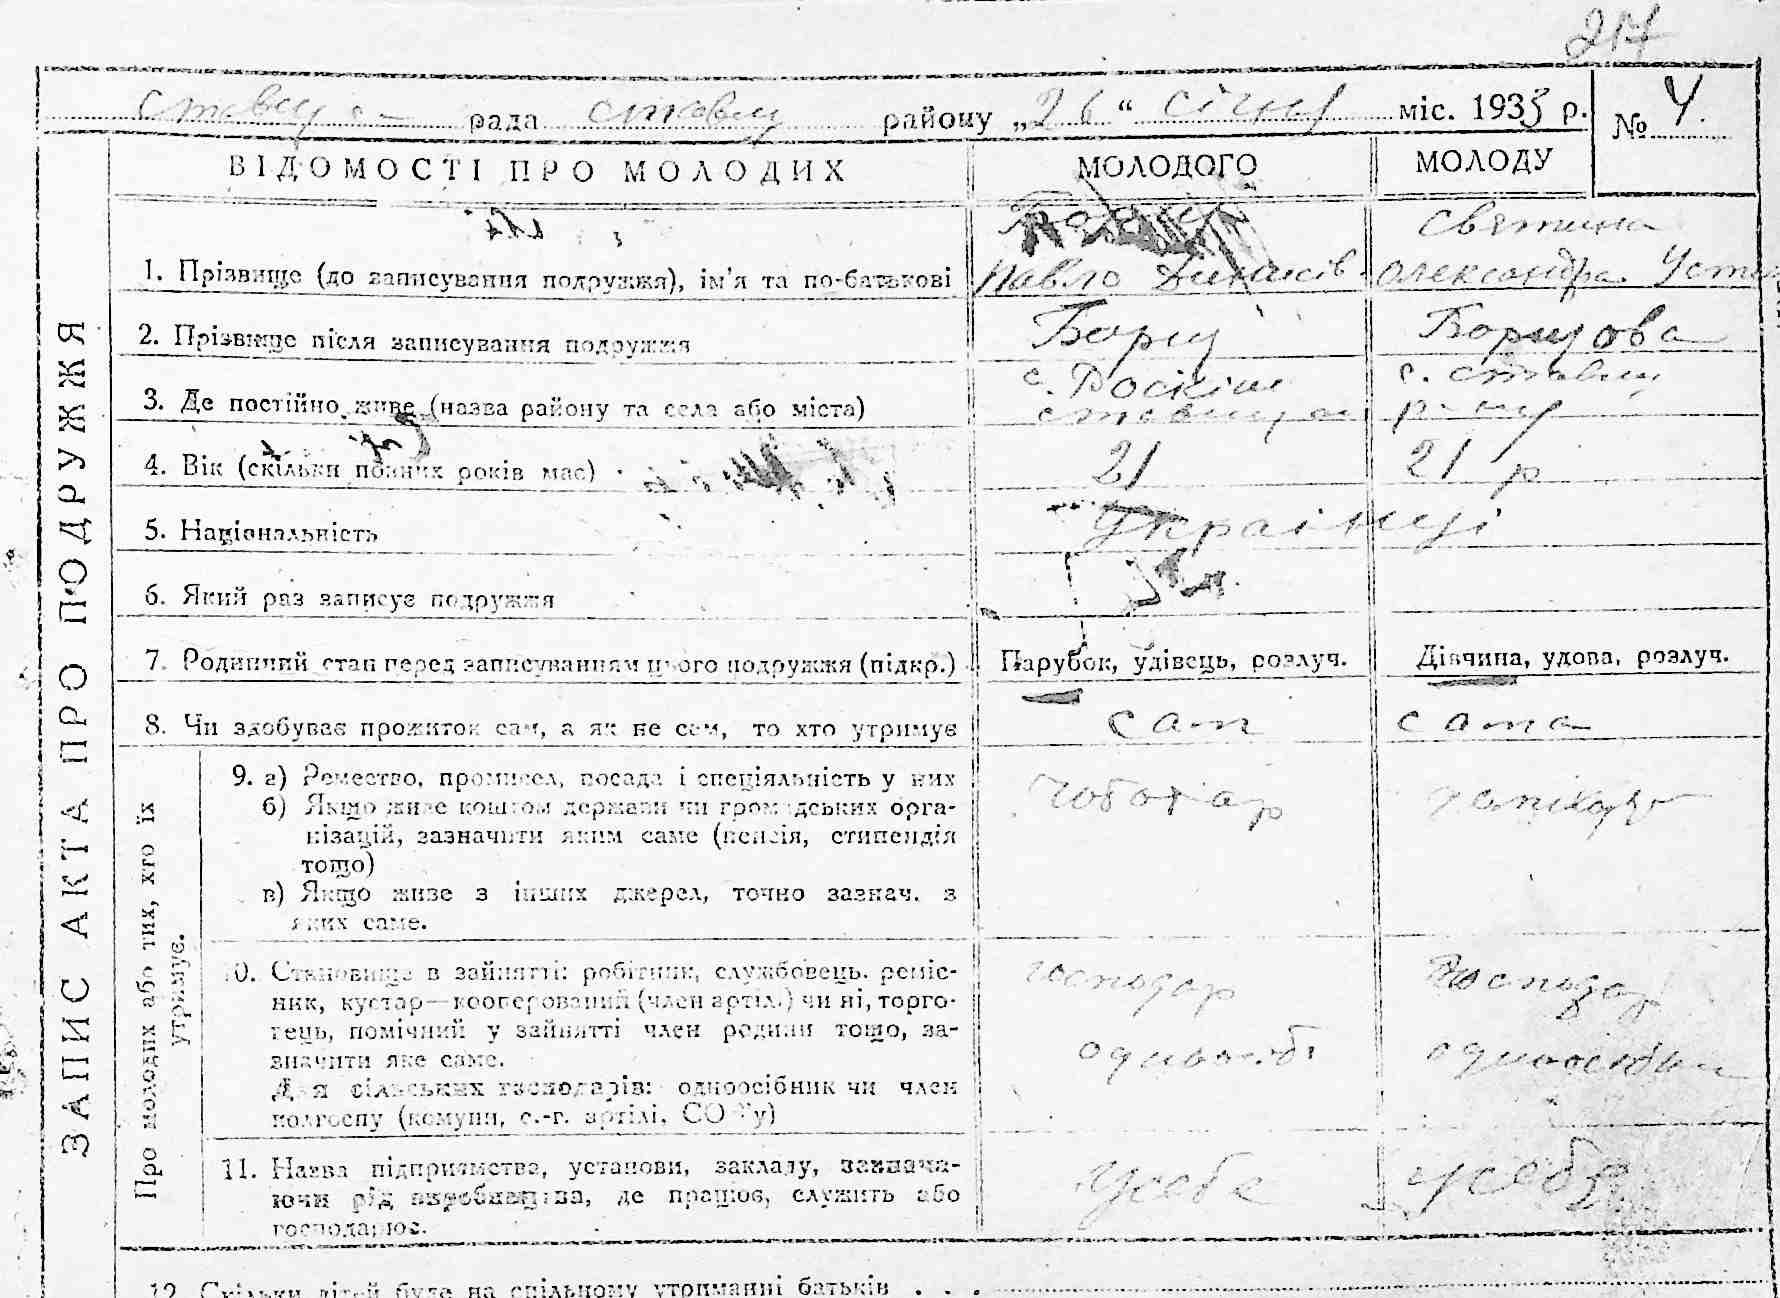 217
рада ставищ району „26“ січня міс. 1933 р. № 4.
ВІДОМОСТІ ПРО МОЛОДИХ МОЛОДОГО МОЛОДУ
1. Прізвище (до записування подружжя), ім'я та по-батькові Павло Олександра
2. Прізвище після записування подружжя Борщ Борщова
3. Де постійно живе (назва району та села або міста) с. Розкішн с. ставищ
4. Вік (скільки повних років має) 21 21 р
5. Національність Українці
6. Який раз записує подружжя
7. Родинний стан перед записуванням цього подружжя (підкр.) Парубок, удівець, розлуч. Дівчина, удова, розлуч.
8. Чи здобуває прожиток сам, а як не сам, то хто утримує сам сама
9. а) Ремество, промисел, посада і спеціяльність у них чоботар
б) Якщо живе коштом держави чи громадських орга-
нізацій, зазначити яким саме (пенсія, стипендія
тощо)
в) Якщо живе з інших джерел, точно зазнач. з
яких саме.
10. Становище в зайнятті: робітник, службовець, реміс- господар господар
ник, кустар—кооперований (член артіл.) чи ні, торго-
вець, помічний у зайнятті член родини тощо, за-
значити яке саме. одноосіб
Для сільських господарів: одноосібник чи член
колгоспу (комуни, с.-г. артілі, СОЗ'у)
11. Назва підприємства, установи, закладу, зазнача- Усебе Усебе
ючи рід виробництва, де працює, служить або
господарює.
12. Скільки дітей буде на спільному утриманні батьків . . .
ЗАПИС АКТА ПРО ПОДРУЖЖЯ
Про молодих або тих, хто їх
утримує.